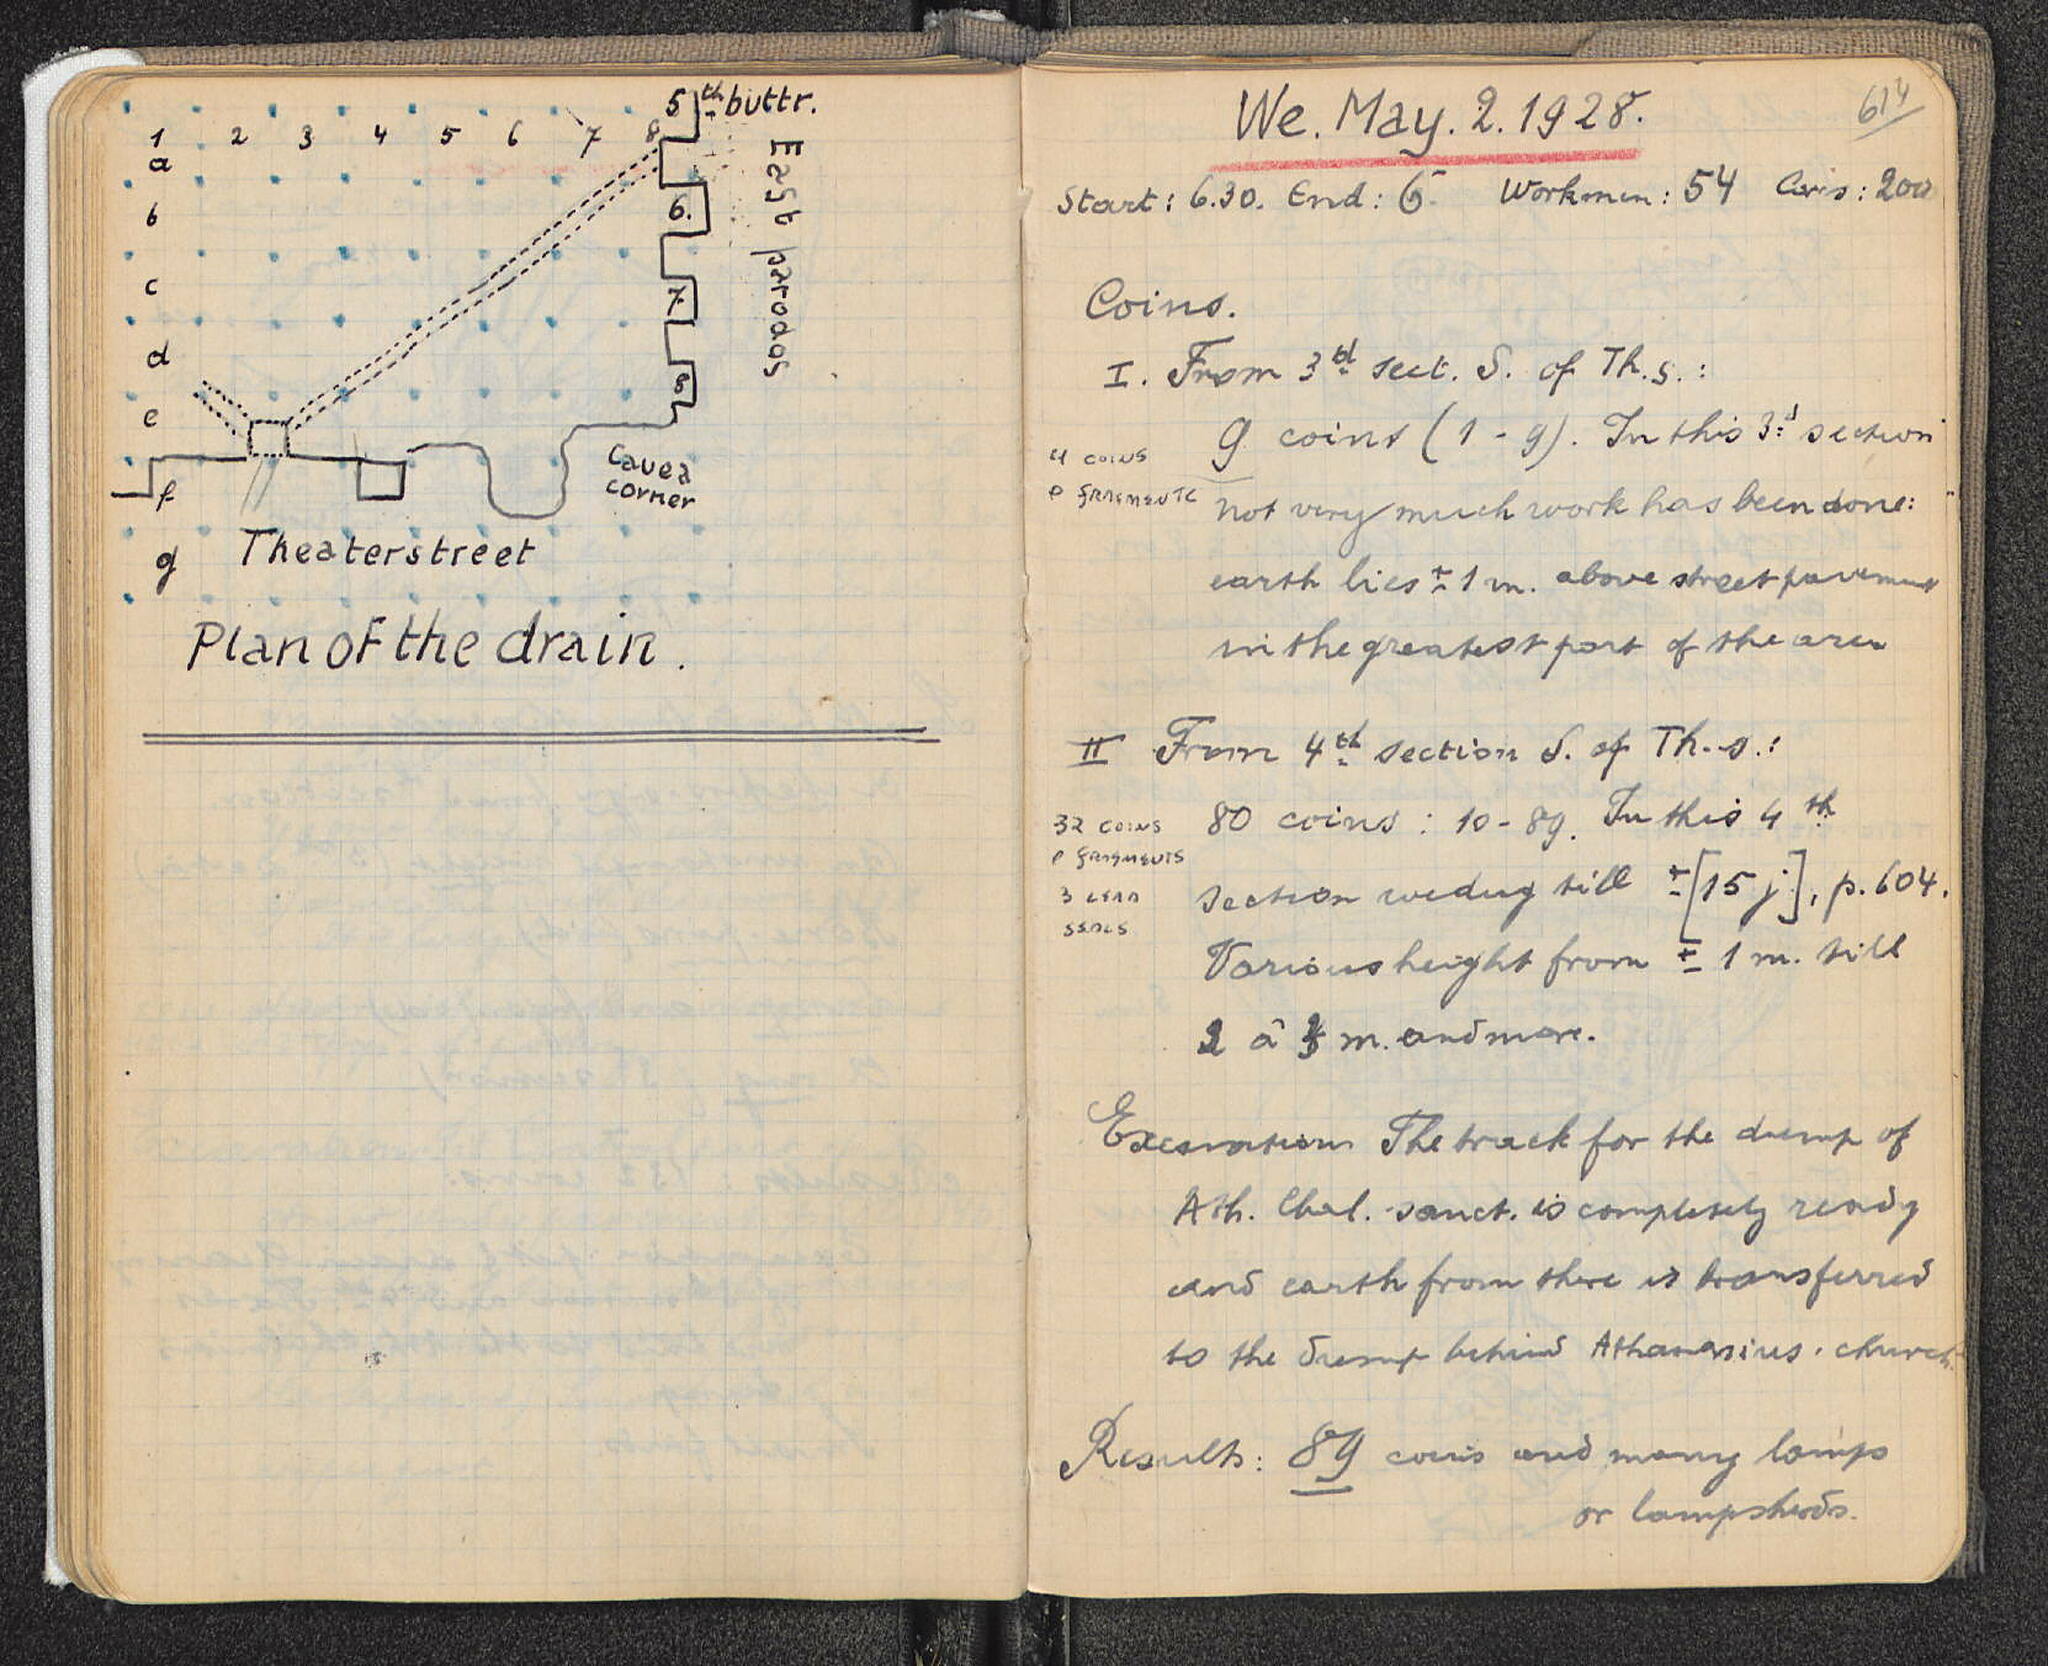 5th buttr.
1 2 3 4 5 6 7 8
a
b
c
d
e
f
g
6.
7.
8
East parodos
Cavea
corner
Theaterstreet
Plan of the drain.
614
We. May. 2. 1928.
Start: 6.30. End: 6. Workmen: 54 Cars: 200
Coins.
I. From 3d sect. S. of Th.s.:
9 coins (1-9). In this 3d section
4 COINS
FRAGMENTS
not very much work has been done:
earth lies ± 1 m. above street pavement
in the greatest part of the area
II From 4th section S. of Th.s.:
80 coins: 10-89. In this 4th
32 COINS
FRAGMENTS
3 LEAD
SEALS
section we dug till ± [15 j], p. 604.
Various height from ± 1 m. till
2 à 3 m. and more.
Excavation The track for the dump of
Ath. Chal. sanct. is completely ready
and earth from there is transferred
to the dump behind Athanasius-church.
Results: 89 coins and many lamps
or lampsherds.